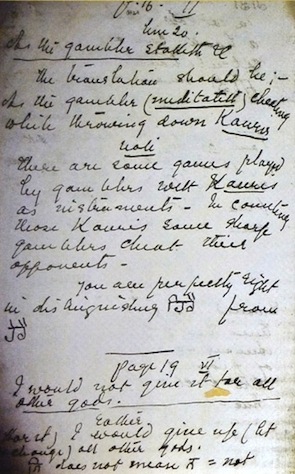 Hm 20.
As the gambler stalleth &c
The translation should be:-
As the gambler (meditateth) cheating
while throwing down Kauris
note
There are some games played
by gamblers with Kauris
as instruments - In counting
those Kauris some sharp
gamblers cheat their
opponents -
You are perfectly right
in distinguishing from
Page 19 VI
I would not give it for all
other gods.
Rather
I would give up (lit
change) all other gods.
does not mean = not